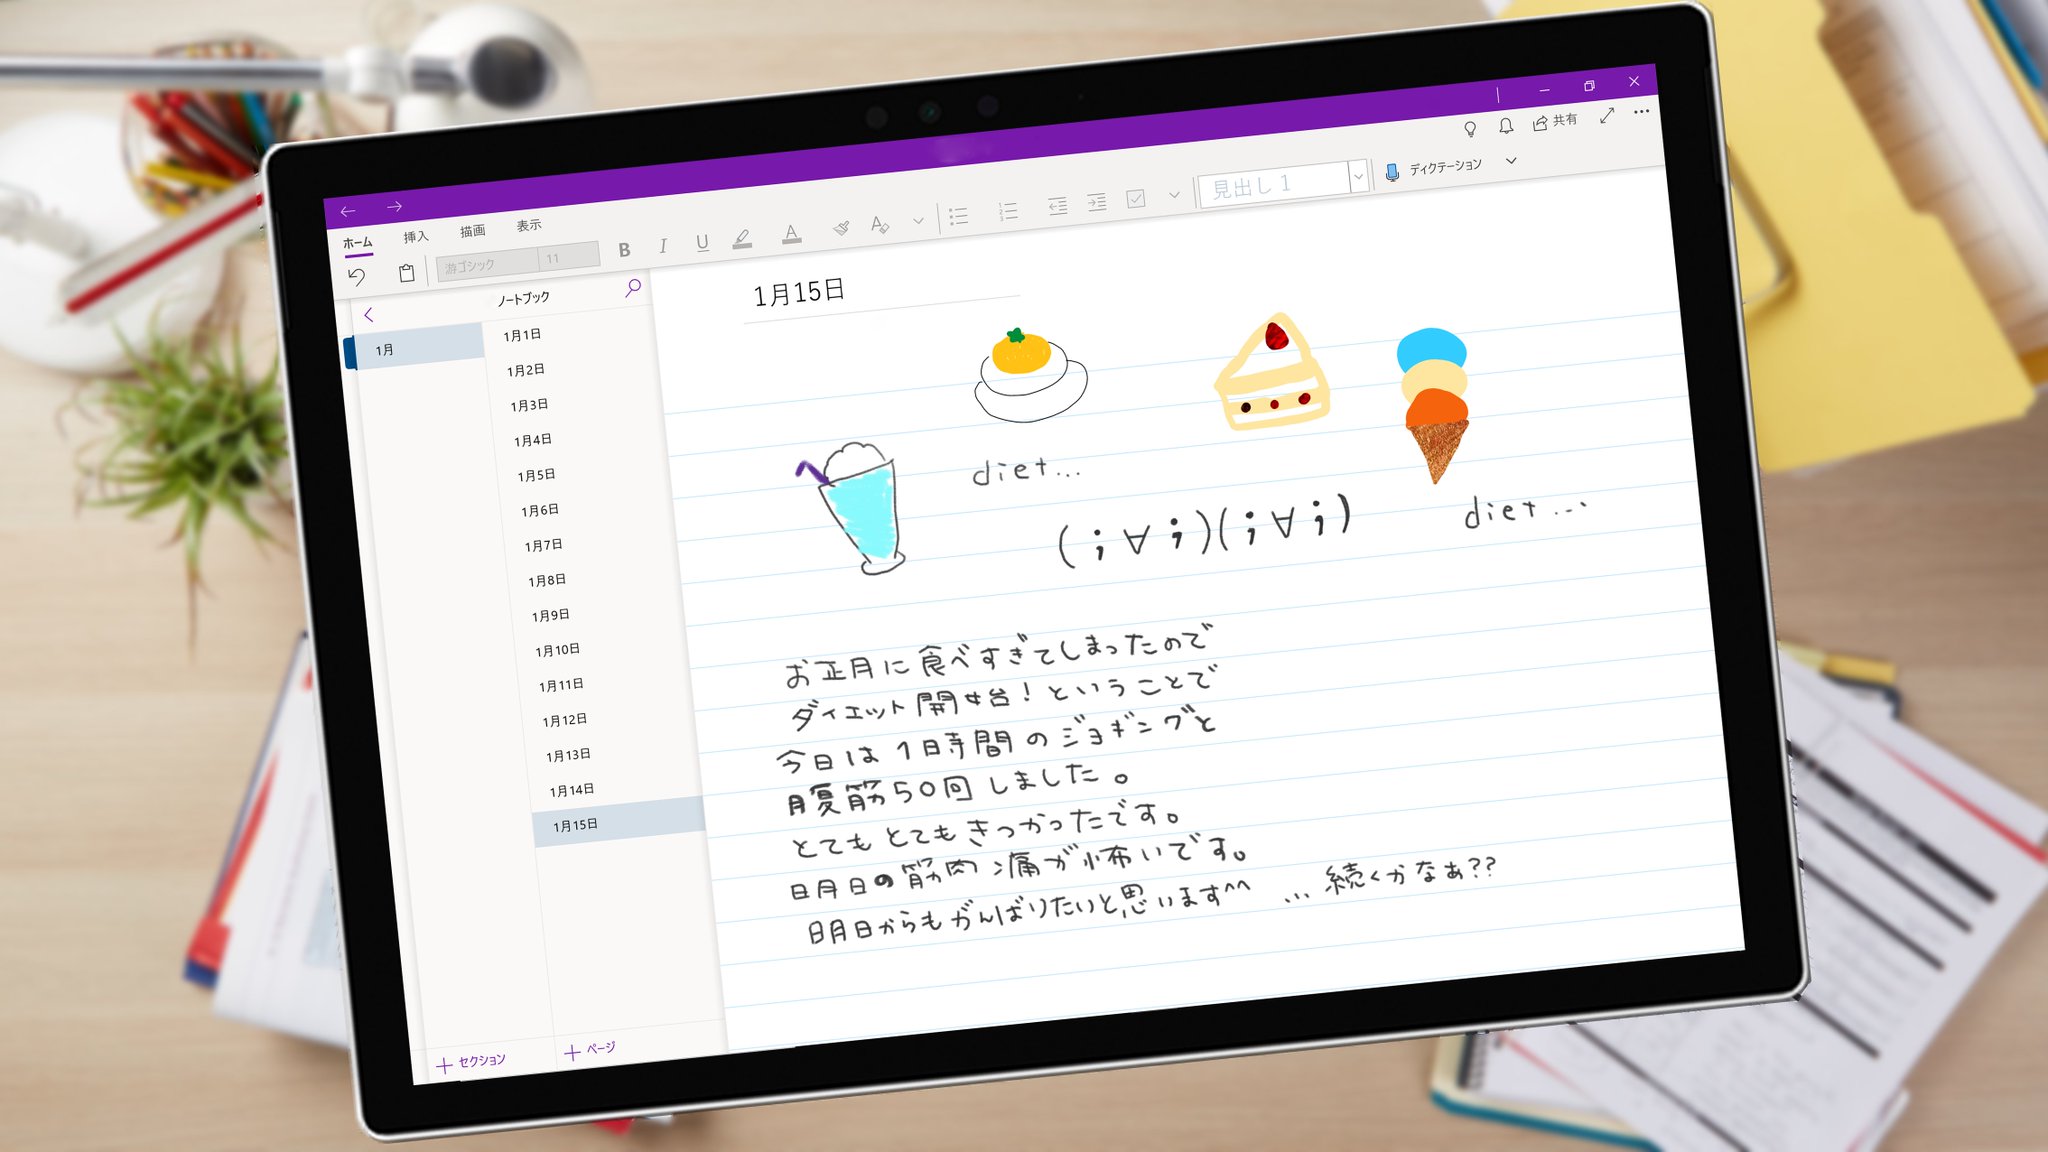 共有
ホーム 挿入 描画 表示
游ゴシック 11 B I U A A 見出し 1 ディクテーション
ノートブック
1月
1月1日
1月2日
1月3日
1月4日
1月5日
1月6日
1月7日
1月8日
1月9日
1月10日
1月11日
1月12日
1月13日
1月14日
1月15日
+ セクション
+ ページ
1月15日
diet...
(；∀；)(；∀；)
diet...
お正月に食べすぎてしまったので
ダイエット開始！ということで
今日は1時間のジョギングと
腹筋50回しました。
とてもとてもきつかったです。
明日の筋肉痛が怖いです。
明日からもがんばりたいと思います^^ ...続くかなぁ??